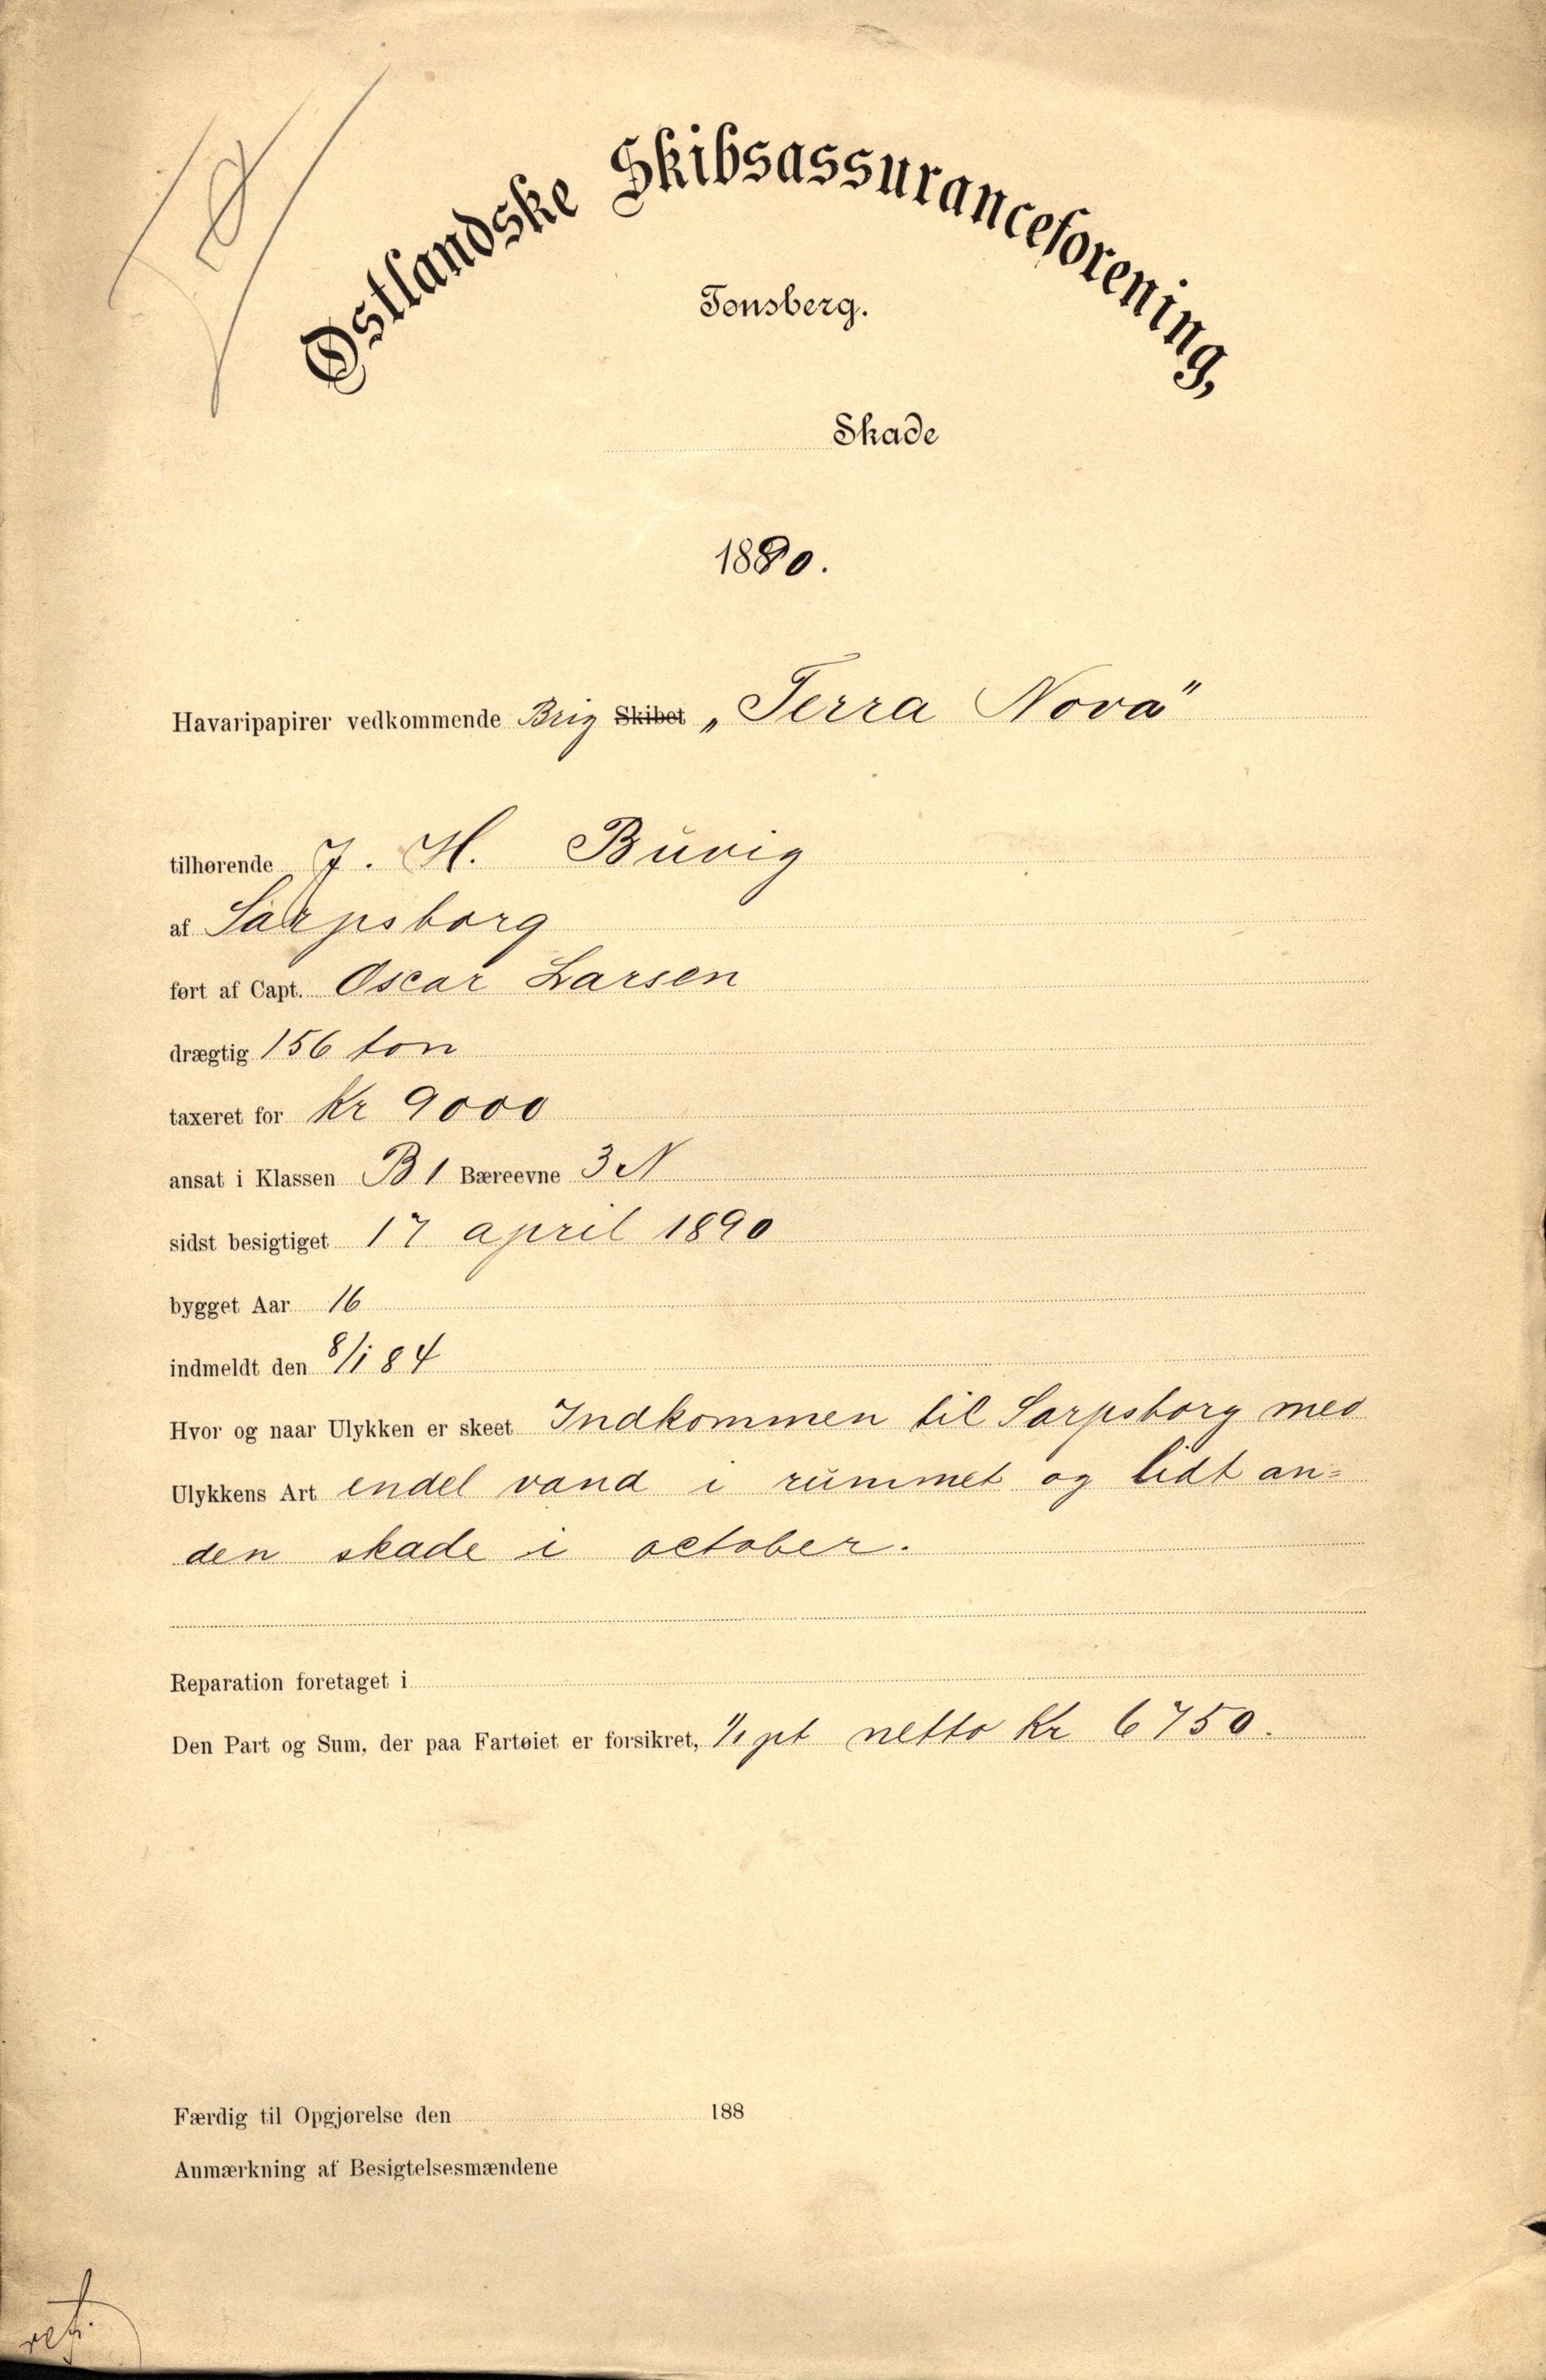 Østlandske Skibsassuranceforening,
Tønsberg.
Skade
1890.
Havaripapirer vedkommende Brig Skibet „Terra Nova"
tilhørende J. H. Buvig
af Sarpsborg
ført af Capt. Oscar Larsen
drægtig 156 ton
taxeret for Kr 9000
ansat i Klassen B 1 Bæreevne 3 N
sidst besigtiget 17 april 1890
bygget Aar 16
indmeldt den 8/1 84
Hvor og naar Ulykken er skeet Indkommen til Sarpsborg med
Ulykkens Art endel vand i rummet og lidt an=
den skade i october.
Reparation foretaget i
Den Part og Sum, der paa Fartøiet er forsikret, 1/1 pt netto Kr 6750.
Færdig til Opgjørelse den 188
Anmærkning af Besigtelsesmændene